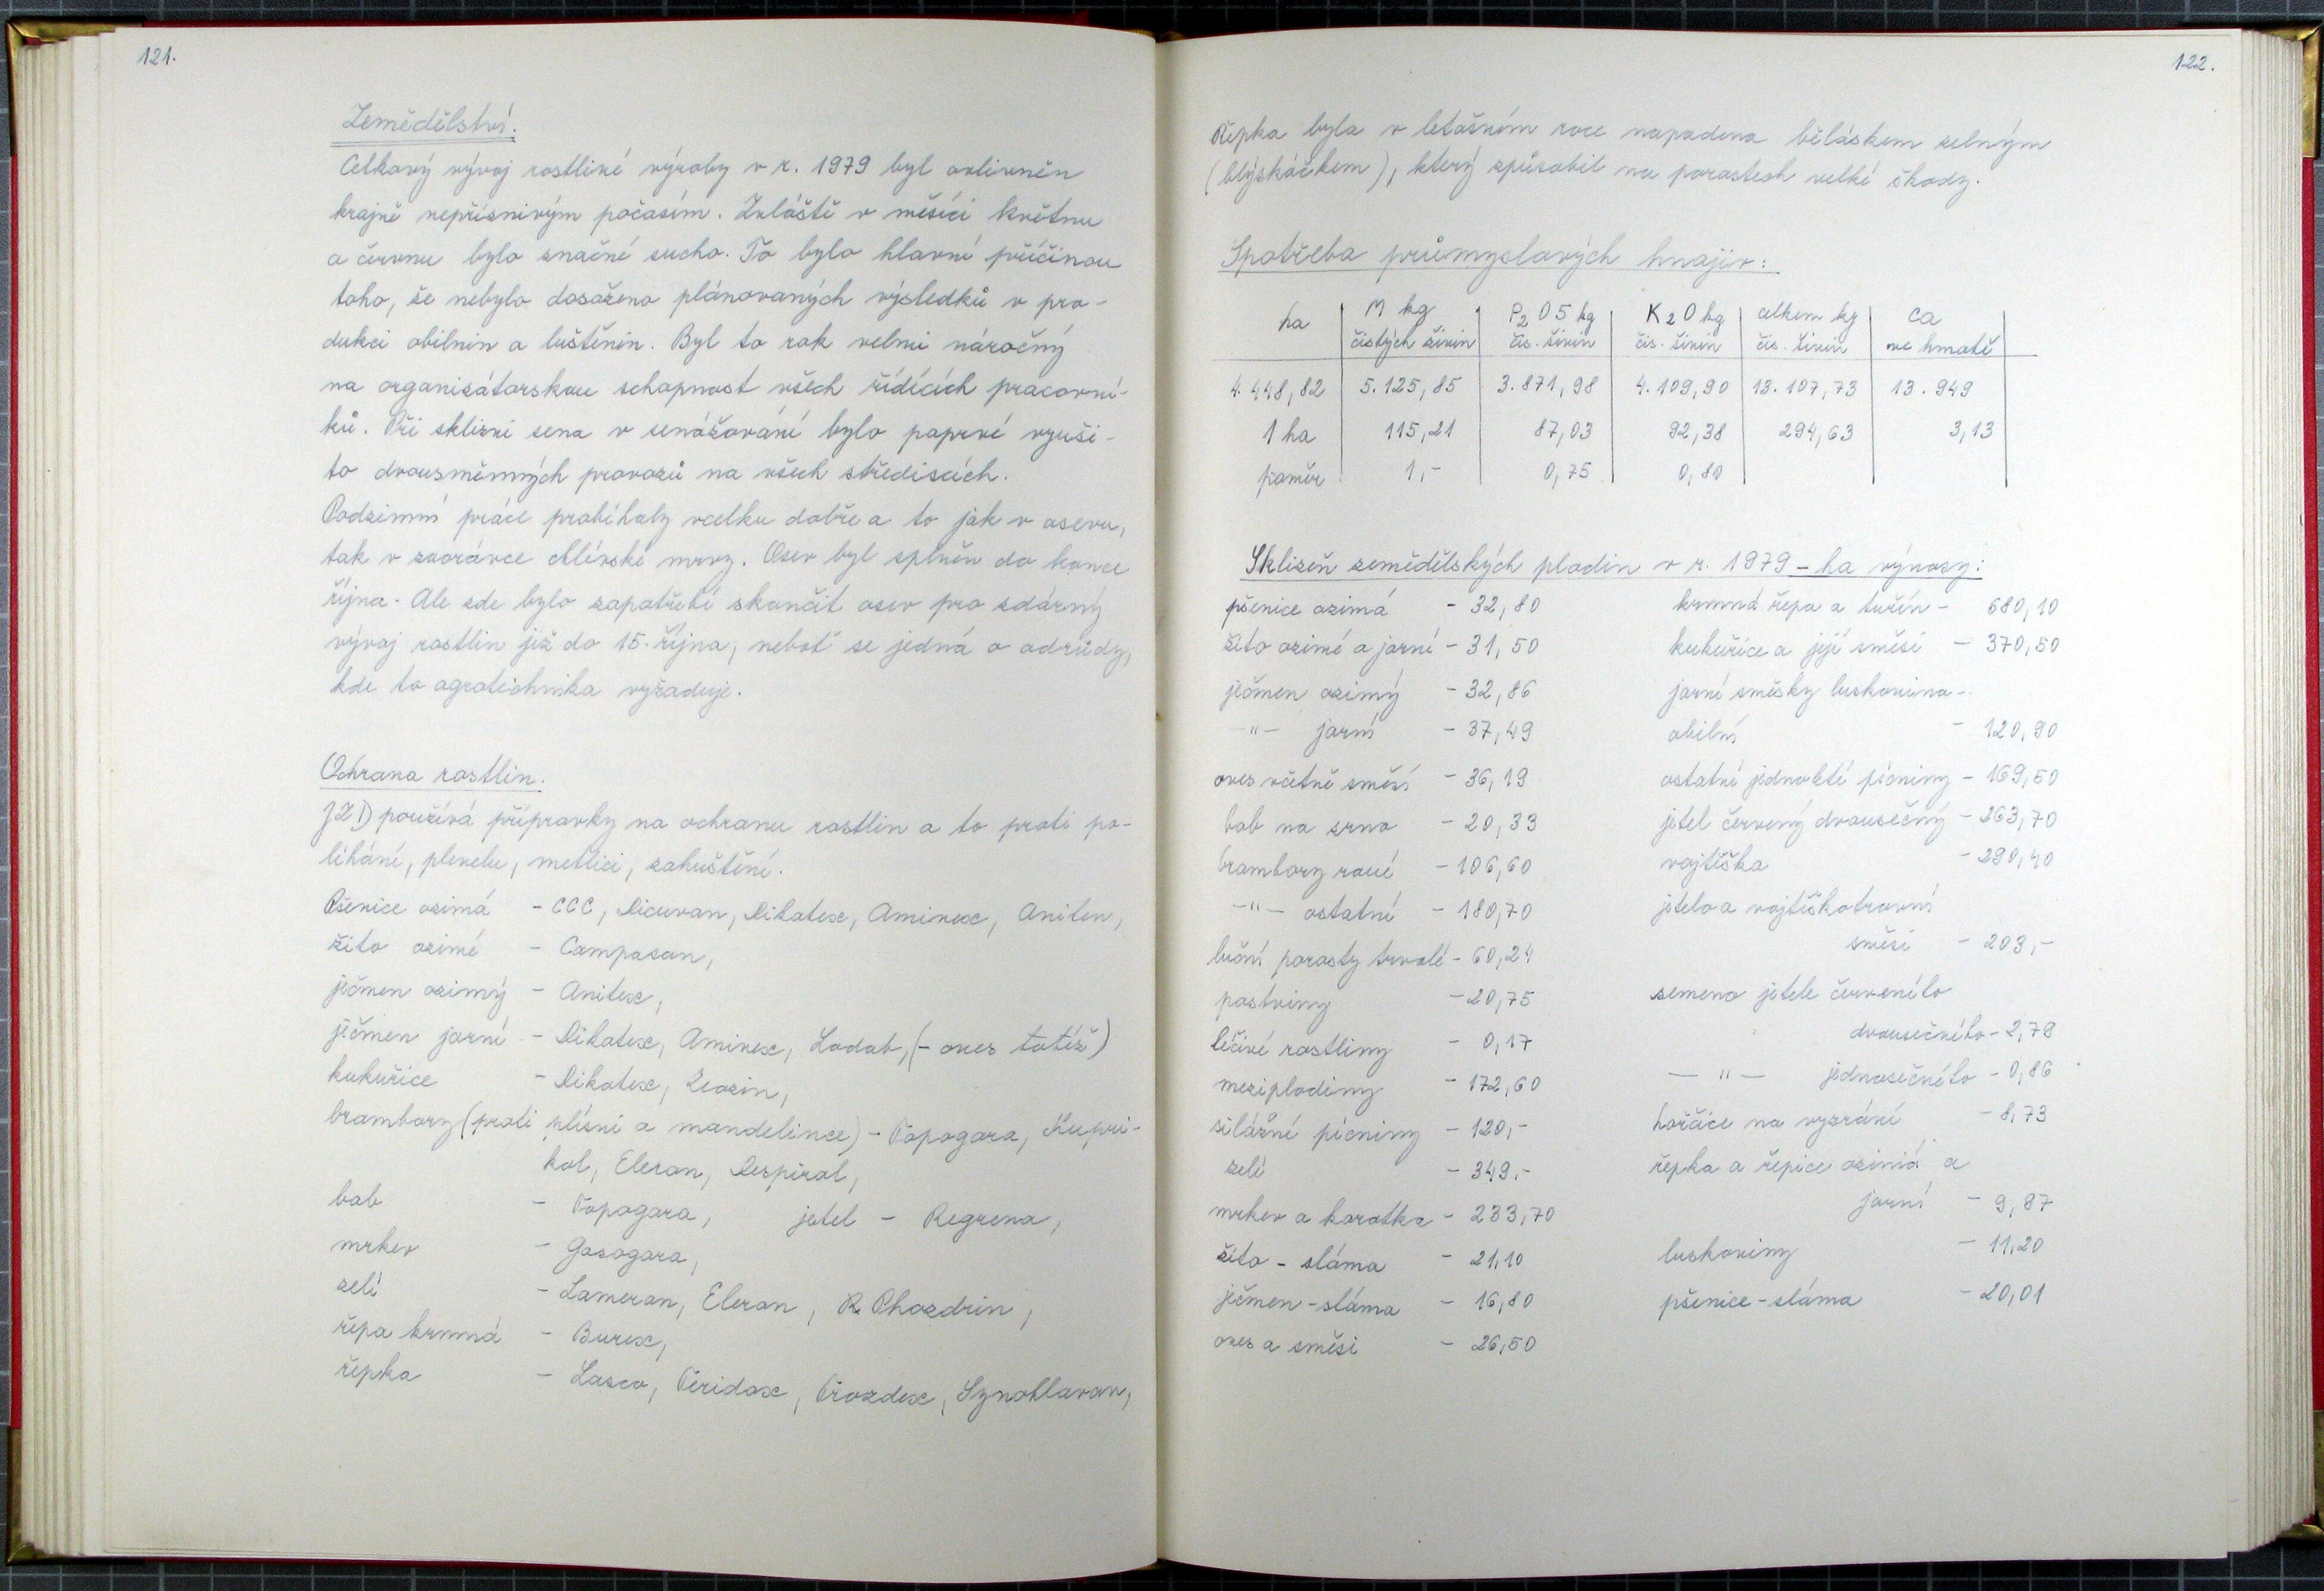 121.
Zemědělství.
Celkový vývoj rostliné výroby v r. 1979 byl ovlivněn
krajně nepříznivým počasím. Zvláště v měsíci květnu
a červnu bylo značné sucho. To bylo hlavní příčinou
toho, že nebylo dosaženo plánovaných výsledků v pro-
dukci obilnin a luštěnin. Byl to rok velmi náročný
na organizátorskou schopnost všech řídících pracovní-
ků. Při sklizni sena v senážování bylo poprvé využi-
to dvousměnných provozů na všech střediscích.
Podzimní práce probíhaly vcelku dobře a to jak v osevu,
tak v zaorávce chlévské mrvy. Osev byl splněn do konce
října. Ale zde bylo zapotřebí skončit osev pro zdárný
vývoj rostlin již do 15. října, neboť se jedná o odrůdy,
kde to agrotechnika vyžaduje.
Ochrana rostlin.
JZD používá přípravky na ochranu rostlin a to proti po-
léhání, plevelu, metlici, zahuštění.
Pšenice ozimá - CCC, Dicuran, Dikotex, Aminex, Aniten,
žito ozimé - Campasan,
ječmen ozimý - Anitex,
ječmen jarní - Dikotex, Aminex, Lodab, (- oves totéž)
kukuřice - Dikotex, Zeazin,
brambory (proti plísni a mandelince) - Topogara, Kupri-
kol, Eleron, Despirol,
bob - Topogara, jetel - Regrena,
mrkev - Gosagara,
zelí - Lameran, Eleron, R Phozdrin,
řepa krmná - Burex,
řepka - Lasco, Teridox, Trozdex, Synohlavan,
122.
Řepka byla v letošním roce napadena běláskem zelným
(blýskáčkem), který způsobil na porostech velké škody.
Spotřeba průmyslových hnojiv:
ha | M kg | P2O5 kg | K2O kg | celkem kg | Ca
čistých živin | čis. živin | čis. živin | čis. živin | ve hmotě
4.448,82 | 5.125,85 | 3.871,98 | 4.109,90 | 13.107,73 | 13.949
1 ha | 115,21 | 87,03 | 92,38 | 294,63 | 3,13
poměr | 1,- | 0,75 | 0,80
Sklizeň zemědělských plodin v r. 1979 - ha výnosy:
pšenice ozimá - 32,80
žito ozimé a jarní - 31,50
ječmen ozimý - 32,86
-"- jarní - 37,49
oves včetně směsí - 36,19
bob na zrno - 20,33
brambory rané - 106,60
-"- ostatní - 180,70
luční porosty trvalé - 60,24
pastviny - 20,75
léčivé rostliny - 0,17
meziplodiny - 172,60
silážní pícniny - 120,-
zelí - 349,-
mrkev a karotka - 233,70
žito - sláma - 21,10
ječmen - sláma - 16,80
oves a směsi - 26,50
krmná řepa a tuřín - 680,10
kukuřice a její směsi - 370,50
jarní směsky luskovino-
obilní - 120,90
ostatní jednoleté pícniny - 169,50
jetel červený dvousečný - 263,70
vojtěška - 290,40
jetelo a vojtěškotravní
směsi - 203,-
semeno jetele červeného
dvousečného - 2,78
- " - jednosečného - 0,86
hořčice na vyzrání - 8,73
řepka a řepice ozimá a
jarní - 9,87
luskoviny - 11,20
pšenice - sláma - 20,01